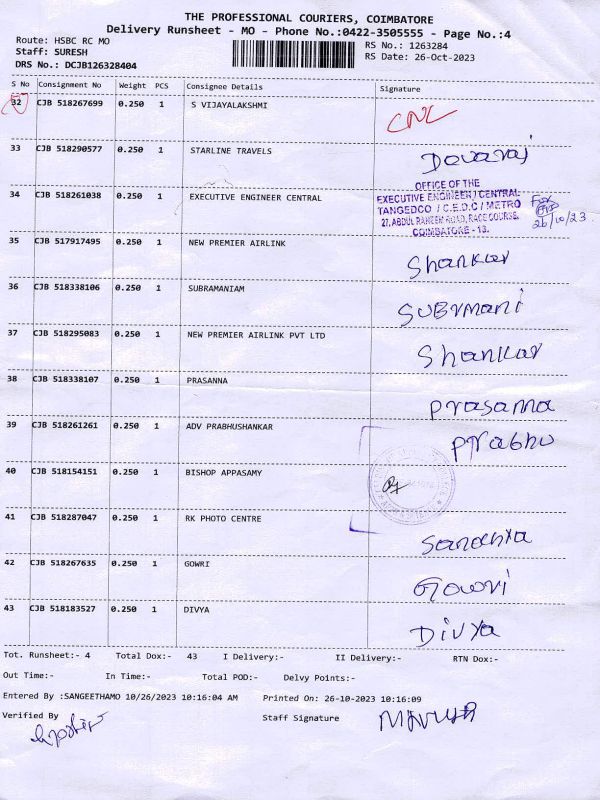 THE PROFESSIONAL COURIERS, COIMBATORE
Delivery Runsheet - MO - Phone No.:0422-3505555 - Page No.:4
Route: HSBC RC MO RS No.: 1263284
Staff: SURESH RS Date: 26-Oct-2023
DRS No.: DCJB126328404
S No Consignment No Weight PCS Consignee Details Signature
32 CJB 518267699 0.250 1 S VIJAYALAKSHMI CNL
33 CJB 518290577 0.250 1 STARLINE TRAVELS Devaraj
34 CJB 518261038 0.250 1 EXECUTIVE ENGINEER CENTRAL
OFFICE OF THE
EXECUTIVE ENGINEER/CENTRAL
TANGEDCO / C.E.D.C / METRO
27, ABDUL RAHEEM ROAD, RACE COURSE,
COIMBATORE - 13.
26/10/23
35 CJB 517917495 0.250 1 NEW PREMIER AIRLINK Shankar
36 CJB 518338106 0.250 1 SUBRAMANIAM SUBrmani
37 CJB 518295083 0.250 1 NEW PREMIER AIRLINK PVT LTD Shankar
38 CJB 518338107 0.250 1 PRASANNA Prasanna
39 CJB 518261261 0.250 1 ADV PRABHUSHANKAR Prabhu
40 CJB 518154151 0.250 1 BISHOP APPASAMY
41 CJB 518287047 0.250 1 RK PHOTO CENTRE Sandhya
42 CJB 518267635 0.250 1 GOWRI Gowri
43 CJB 518183527 0.250 1 DIVYA Divya
Tot. Runsheet:- 4 Total Dox:- 43 I Delivery:- II Delivery:- RTN Dox:-
Out Time:- In Time:- Total POD:- Delvy Points:-
Entered By :SANGEETHAMO 10/26/2023 10:16:04 AM Printed On: 26-10-2023 10:16:09
Verified By Staff Signature